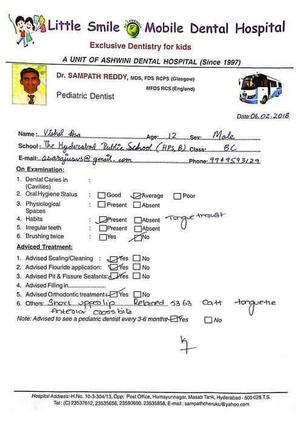 Little Smile Mobile Dental Hospital
Exclusive Dentistry for kids
A UNIT OF ASHWINI DENTAL HOSPITAL (Since 1997)
Dr. SAMPATH REDDY, MDS, FDS RCPS (Glasgow)
MFDS RCS (England)
Pediatric Dentist
Date: 06.02.2018
Name: Age: 12 Sex: Male
School: The Hyderabad Public School (HPS, B) Class: BC
E-mail: @gmail.com Phone:
On Examination:
1. Dental Caries in :
(Cavities)
2. Oral Hygiene Status : Good Average Poor
3. Physiological : Present Absent
Spaces
4. Habits : Present Absent Tonguethrust
5. Irregular teeth : Present Absent
6. Brushing twice : Yes No
Adviced Treatment:
1. Advised Scaling/Cleaning : Yes No
2. Advised Flouride application: Yes No
3. Advised Pit & Fissure Sealants: Yes No
4. Advised Filling in
5. Advised Orthodontic treatment: Yes No
6. Others: Short upperlip Retained 53 63
Anterior crossbite
Note: Advised to see a pediatric dentist every 3-6 months Yes No
Hospital Address: H.No. 10-3-304/13, Opp: Post Office, Humayunnagar, Masab Tank, Hyderabad - 500 028 T.S.
Tel: (C) 23537612, 23535656, 23590690, 23535858, E-mail: sampathcheruku@yahoo.com